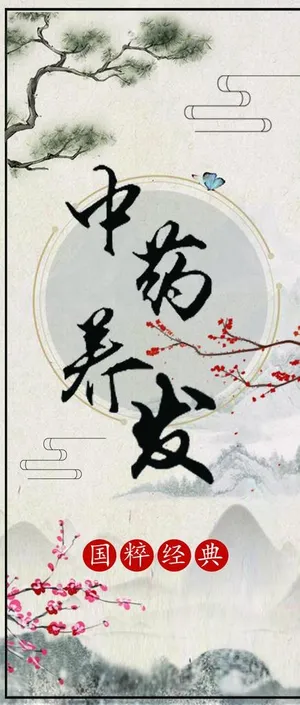 中药
养发
国粹经典